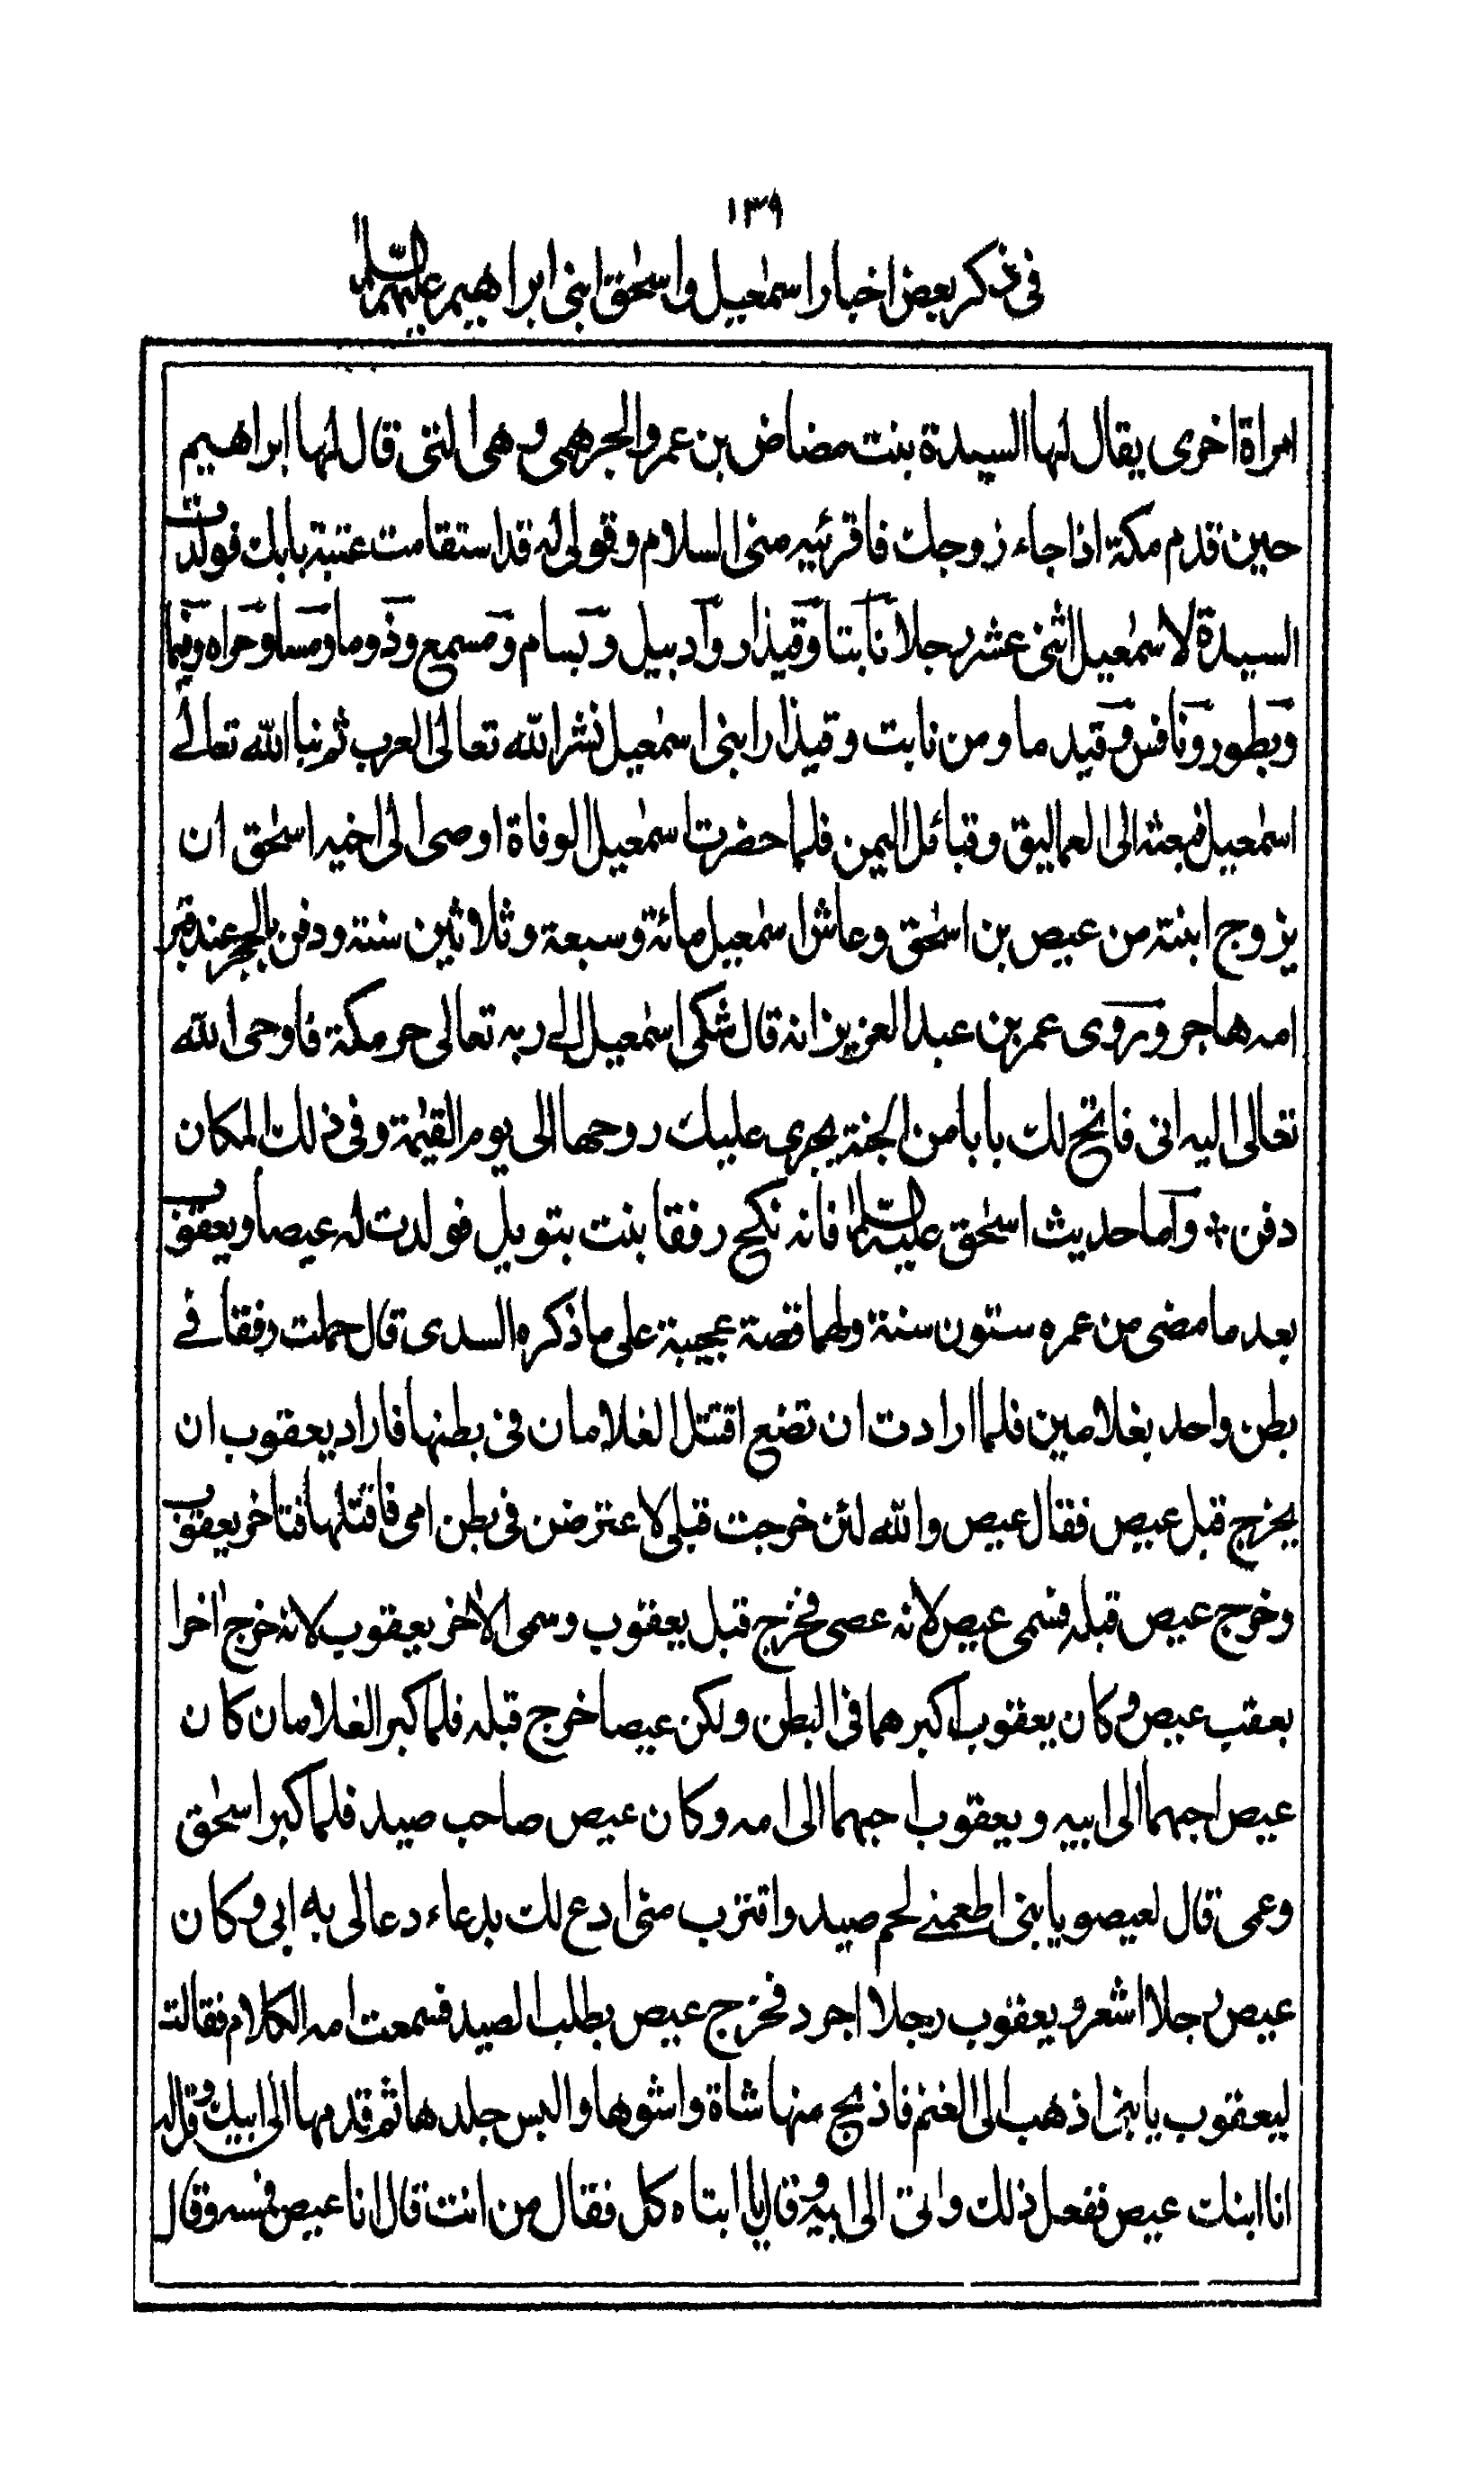 ١٣٩
فى ذكر بعض اخبار اسمٰعيل واسحٰق ابنى ابراهيم عليهما السلام
امراة اخرى يقال لها السيدة بنت مضاض بن عمرو الجرهمى وهى التى قال لها ابراهيم
حين قدم مكة اذا جاء زوجك فاقرئيه منى السلام وقولى له قد استقامت عتبة بابك فولدت
السيدة لاسمٰعيل اثنى عشر رجلا نابتا وقيذار وآدبيل وبسام ومسمع وذوما ومسا وحراه وقيما
وبطور ونافس وقيدما ومن نابت وقيذار ابنى اسمٰعيل نشر الله تعالى العرب ثم نبا الله تعالے
اسمٰعيل فبعثه الى العماليق وقبائل اليمن فلما حضرت اسمٰعيل الوفاة اوصى الى اخيه اسحٰق ان
يزوج ابنته من عيص بن اسحٰق وعاش اسمٰعيل مائة وسبعة وثلاثين سنة ودفن بالحجر عند قبر
امه هاجر وروى عمر بن عبد العزيز انه قال شكى اسمٰعيل الے ربه تعالى حر مكة فاوحى الله
تعالى اليه انى فاتح لك بابا من الجنة يجرى عليك روحها الى يوم القيٰمة وفى ذلك المكان
دفن ÷ وآما حديث اسحٰق عليه السلام فانه نكح رفقا بنت بتويل فولدت له عيصا ويعقوب
بعد ما مضى من عمره ستون سنة ولهما قصة عجيبة على ما ذكره السدى قال حملت رفقا فے
بطن واحد بغلامين فلما ارادت ان تضع اقتتل الغلامان فى بطنها فاراد يعقوب ان
يخرج قبل عيص فقال عيص والله لئن خرجت قبلى لاعترضن فى بطن امى فاقتلها فتاخر يعقوب
وخرج عيص قبله فسمى عيص لانه عصى فخرج قبل يعقوب وسمى الاٰخر يعقوب لانه خرج اٰخرا
بعقب عيص وكان يعقوب اكبرهما فى البطن ولكن عيصا خرج قبله فلما كبر الغلامان كان
عيص احبهما الى ابيه ويعقوب احبهما الى امه وكان عيص صاحب صيد فلما كبر اسحٰق
وعمى قال لعيصو يا بنى اطعمنے لحم صيد واقترب منى ادع لك بدعاء دعا لى به ابى وكان
عيص رجلا اشعر ويعقوب رجلا اجرد فخرج عيص يطلب الصيد فسمعت امه الكلام فقالت
ليعقوب يا بنى اذهب الى الغنم فاذبح منها شاة واشوها والبس جلدها ثم قدمها الى ابيك وقل له
انا ابنك عيص ففعل ذلك واتى الى ابيه وقال يا ابتاه كل فقال من انت قال انا عيص فمسه وقال